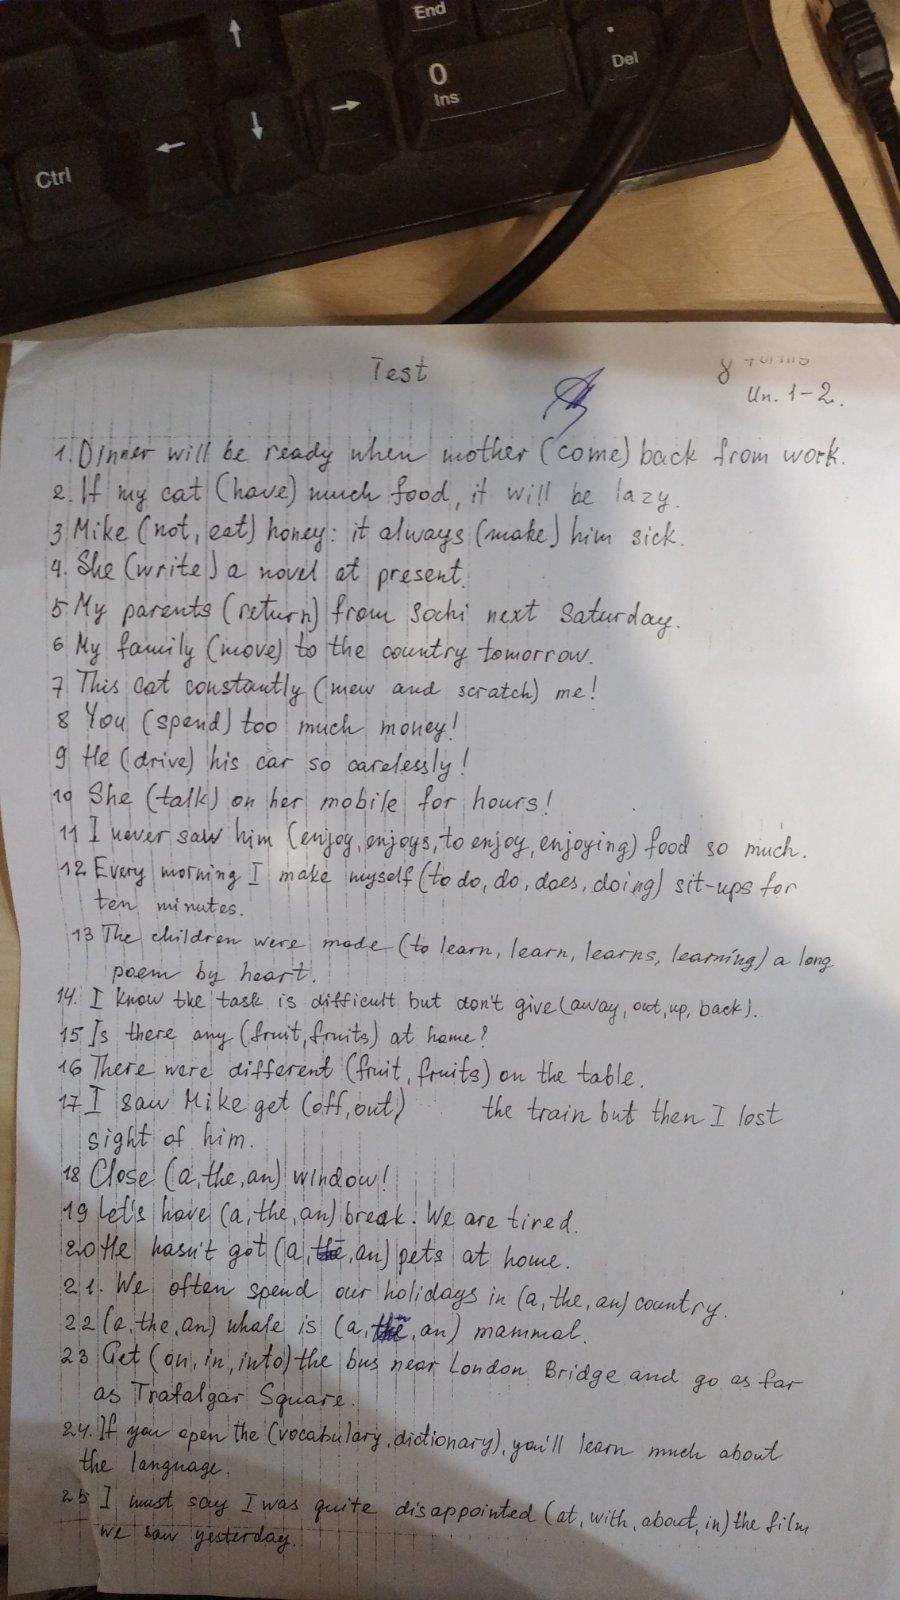 End
0
Ins
Del
Ctrl
Test
8
Un. 1-2.
1. Dinner will be ready when mother (come) back from work.
2. If my cat (have) much food, it will be lazy.
3 Mike (not, eat) honey: it always (make) him sick.
4. She (write) a novel at present.
5 My parents (return) from Sochi next Saturday.
6 My family (move) to the country tomorrow.
7 This cat constantly (mew and scratch) me!
8 You (spend) too much money!
9 He (drive) his car so carelessly!
10 She (talk) on her mobile for hours!
11 I never saw him (enjoy, enjoys, to enjoy, enjoying) food so much.
12 Every morning I make myself (to do, do, does, doing) sit-ups for
ten minutes.
13 The children were made (to learn, learn, learns, learning) a long
poem by heart.
14. I know the task is difficult but don't give (away, out, up, back).
15 Is there any (fruit, fruits) at home?
16 There were different (fruit, fruits) on the table.
17 I saw Mike get (off, out) the train but then I lost
sight of him.
18 Close (a, the, an) window!
19 Let's have (a, the, an) break. We are tired.
20 He hasn't got (a, the, an) pets at home.
21. We often spend our holidays in (a, the, an) country.
22 (a, the, an) whale is (a, the, an) mammal.
23 Get (on, in, into) the bus near London Bridge and go as far
as Trafalgar Square.
24. If you open the (vocabulary, dictionary), you'll learn much about
the language.
25 I must say I was quite disappointed (at, with, about, in) the film
we saw yesterday.